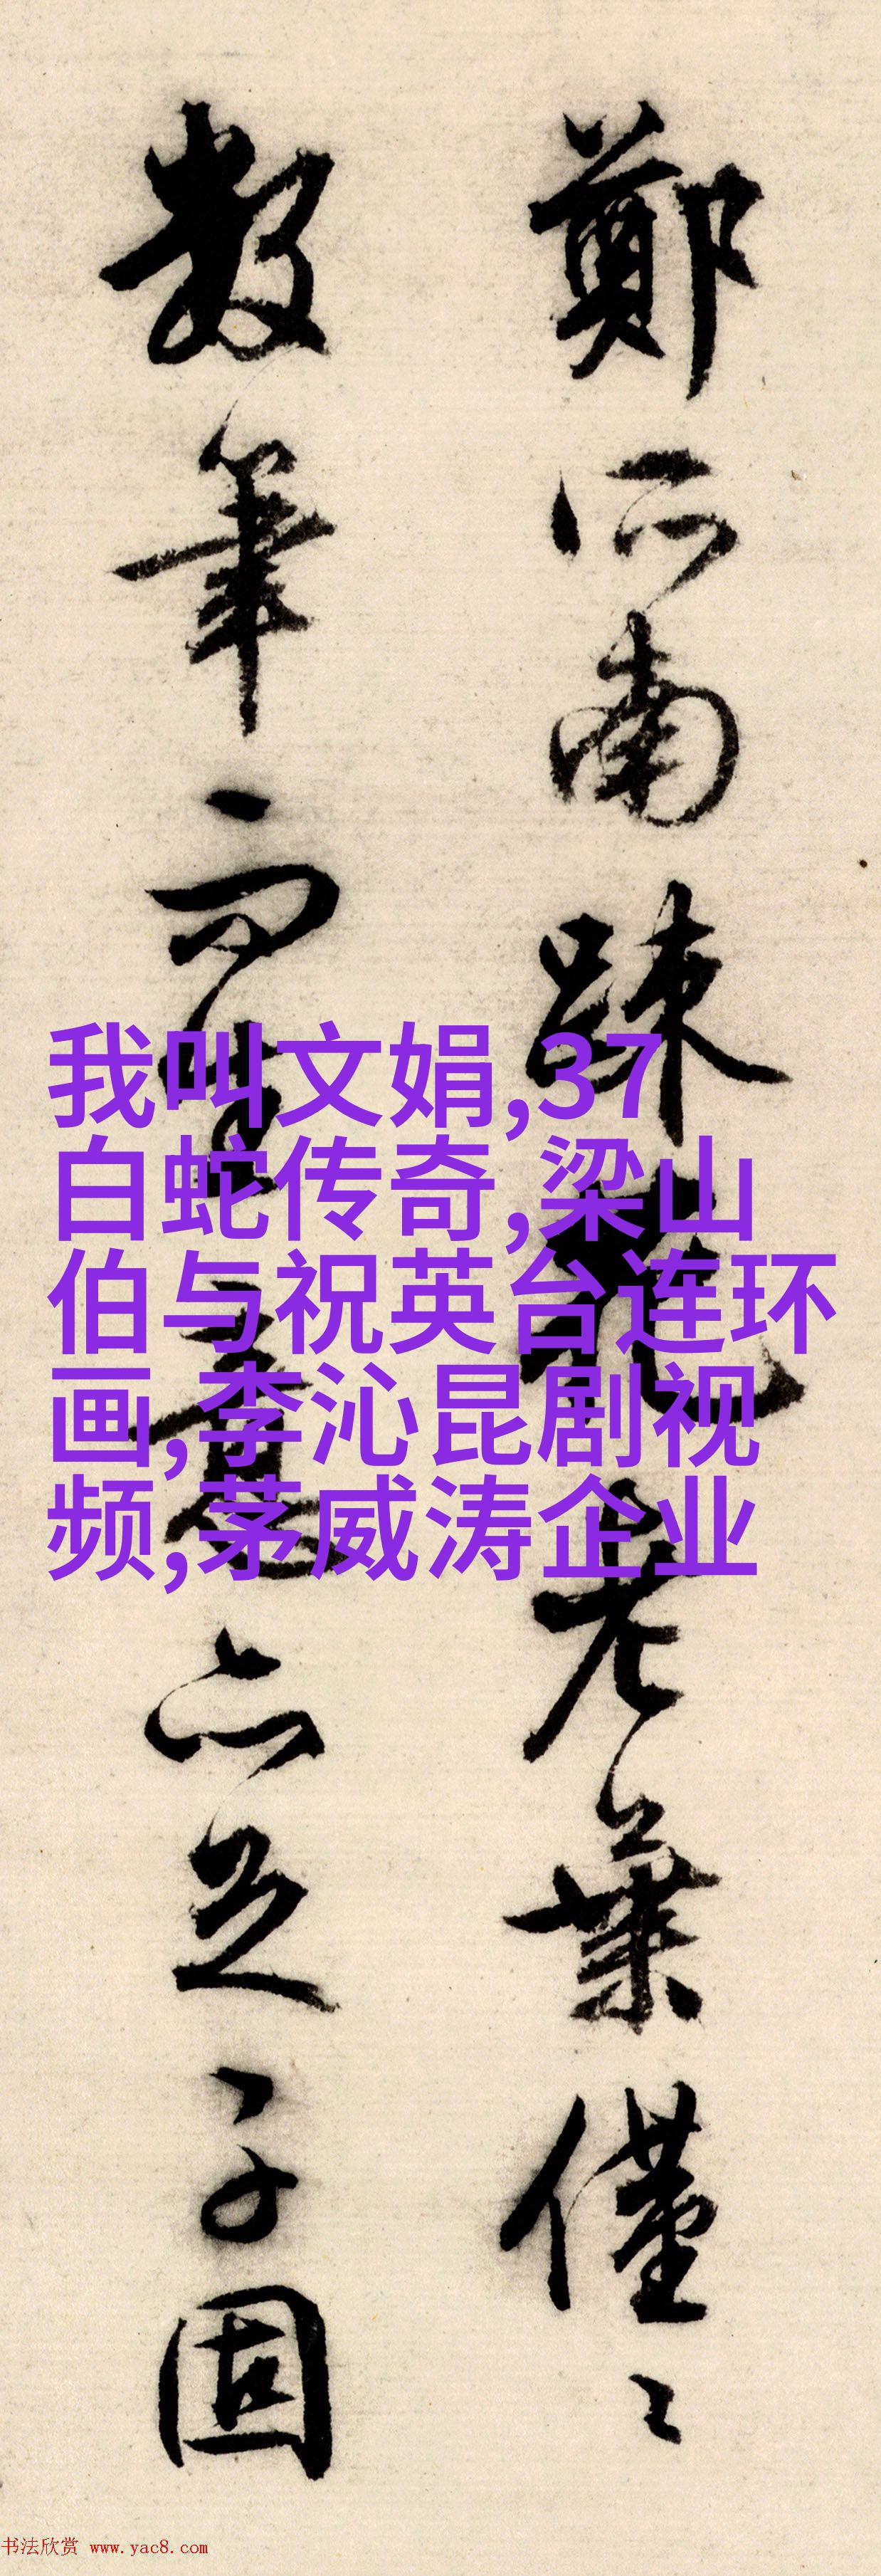 鄭所南疎花老葉僅〻
數筆而生意亦足子固
我叫文娟,37
白蛇传奇,梁山
伯与祝英台连环
画,李沁昆剧视
频,茅威涛企业
书法欣赏 www.yac8.com